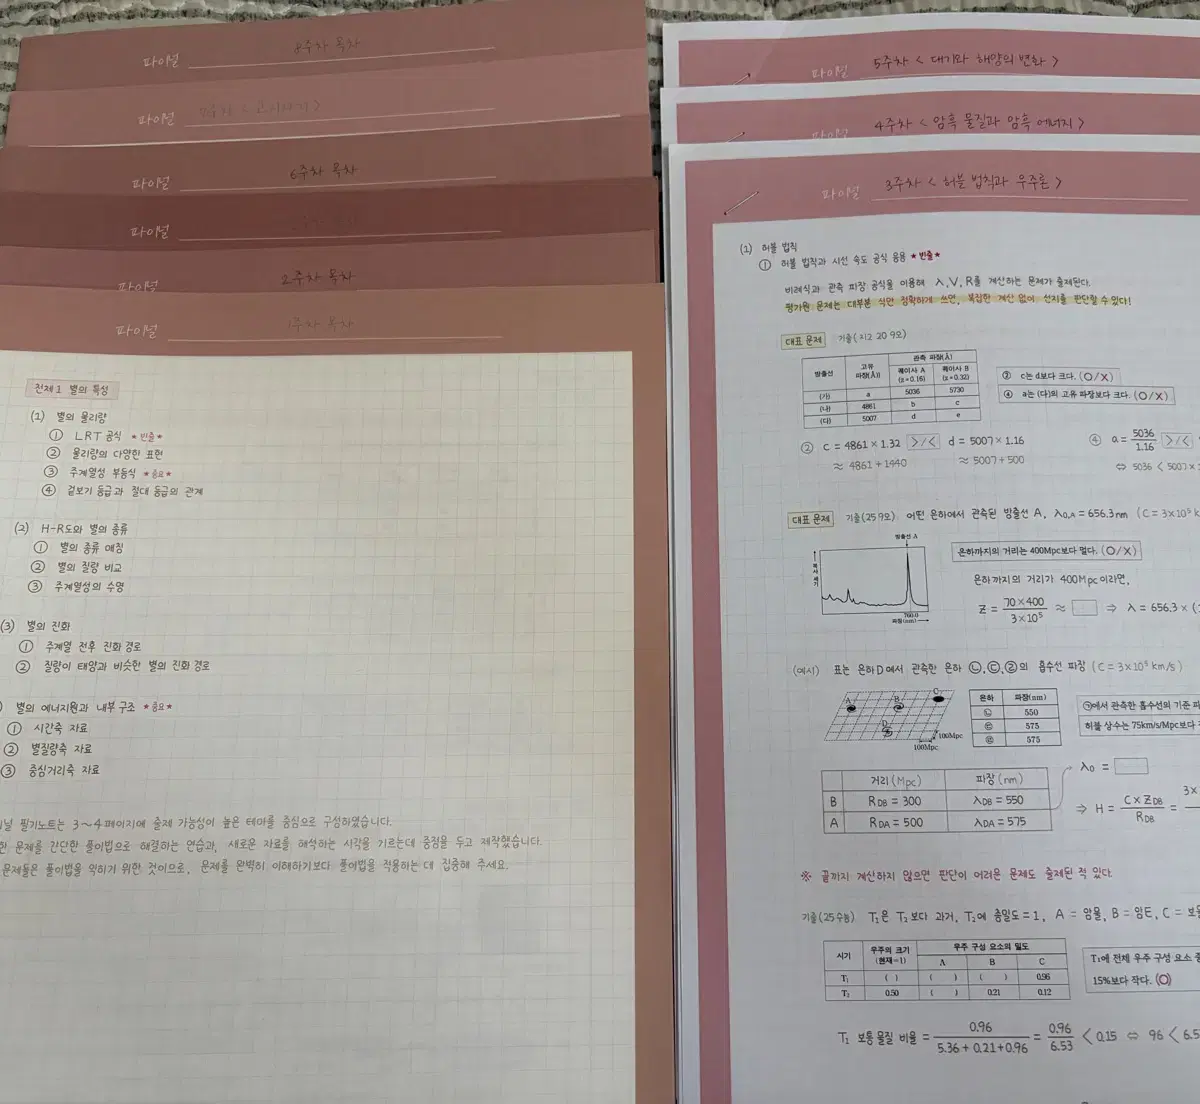 파이널 8주차 목차
파이널 7주차 < 고지자기 >
파이널 6주차 목차
파이널
파이널 2주차 목차
파이널 1주차 목차
전제 1 별의 특성
(1) 별의 물리량
① LRT 공식 ★빈출★
② 물리량의 다양한 표현
③ 주계열성 부등식 ★중요★
④ 겉보기 등급과 절대 등급의 관계
(2) H-R도와 별의 종류
① 별의 종류 매칭
② 별의 질량 비교
③ 주계열성의 수명
(3) 별의 진화
① 주계열 전후 진화 경로
② 질량이 태양과 비슷한 별의 진화 경로
별의 에너지원과 내부 구조 ★중요★
① 시간축 자료
② 별질량축 자료
③ 중심거리축 자료
널 필기노트는 3~4페이지에 출제 가능성이 높은 테마를 중심으로 구성하였습니다.
한 문제를 간단한 풀이법으로 해결하는 연습과, 새로운 자료를 해석하는 시각을 기르는데 중점을 두고 제작했습니다.
문제들은 풀이법을 익히기 위한 것이므로, 문제를 완벽히 이해하기보다 풀이법을 적용하는 데 집중해 주세요.
파이널 5주차 < 대기와 해양의 변화 >
파이널 4주차 < 암흑 물질과 암흑 에너지 >
파이널 3주차 < 허블 법칙과 우주론 >
(1) 허블 법칙
① 허블 법칙과 시선 속도 공식 응용 ★빈출★
비례식과 관측 파장 공식을 이용해 λ, V, R를 계산하는 문제가 출제된다.
평가원 문제는 대부분 식만 정확하게 쓰면, 복잡한 계산 없이 선지를 판단할 수 있다!
대표 문제 기출(지2 20 9모)
방출선 고유 파장(Å) 관측 파장(Å)
퀘이사 A (z=0.16) 퀘이사 B (z=0.32)
(가) a 5036 5730
(나) 4861 b c
(다) 5007 d e
② c는 d보다 크다. (O/X)
④ a는 (다)의 고유 파장보다 크다. (O/X)
② c = 4861×1.32 >/< d = 5007×1.16
≈ 4861+1440 ≈ 5007+500
④ a = 5036/1.16 >/<
⇔ 5036 < 5007×
대표 문제 기출(25 9모) 어떤 은하에서 관측된 방출선 A, λ0,A = 656.3nm (C = 3×10⁵ k
방출선 A
복사 세기
760.0
파장(nm)
은하까지의 거리는 400Mpc보다 멀다. (O/X)
은하까지의 거리가 400Mpc이라면,
Z = 70×400/3×10⁵ ≈ □ ⇒ λ = 656.3×(
(예시) 표는 은하 D에서 관측한 은하 ㉡, ㉢, ㉣의 흡수선 파장 (C = 3×10⁵ km/s)
A B C D
100Mpc
100Mpc
은하 파장(nm)
㉡ 550
㉢ 575
㉣ 575
㉠에서 관측한 흡수선의 기준 파
허블 상수는 75km/s/Mpc보다
거리(Mpc) 파장(nm)
B RDB = 300 λDB = 550
A RDA = 500 λDA = 575
λ0 = □
⇒ H = C×ZDB/RDB =
※ 끝까지 계산하지 않으면 판단이 어려운 문제도 출제된 적 있다.
기출(25수능) T₁은 T₂보다 과거, T₂에 총밀도=1, A = 암물, B = 암E, C = 보통
시기 우주의 크기 (현재=1) 우주 구성 요소의 밀도
A B C
T₁ ( ) ( ) ( ) 0.96
T₂ 0.50 ( ) 0.21 0.12
T₁에 전체 우주 구성 요소 중
15%보다 작다. (O)
T₁ 보통 물질 비율 = 0.96/5.36+0.21+0.96 = 0.96/6.53 < 0.15 ⇔ 96 < 6.5